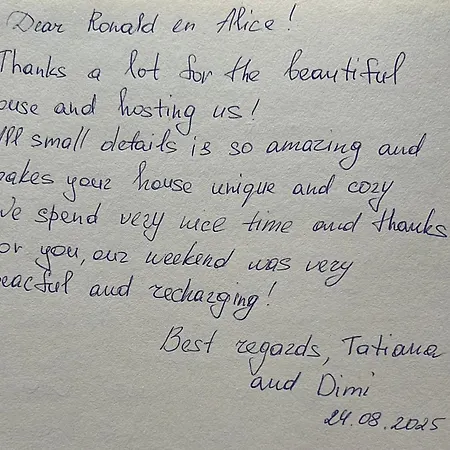 Dear Ronald en Alice!
Thanks a lot for the beautiful
ouse and hosting us!
All small details is so amazing and
akes your house unique and cozy
We spend very nice time and thanks
or you, our weekend was very
eacful and recharging!
Best regards, Tatiana
and Dimi
24.08.2025